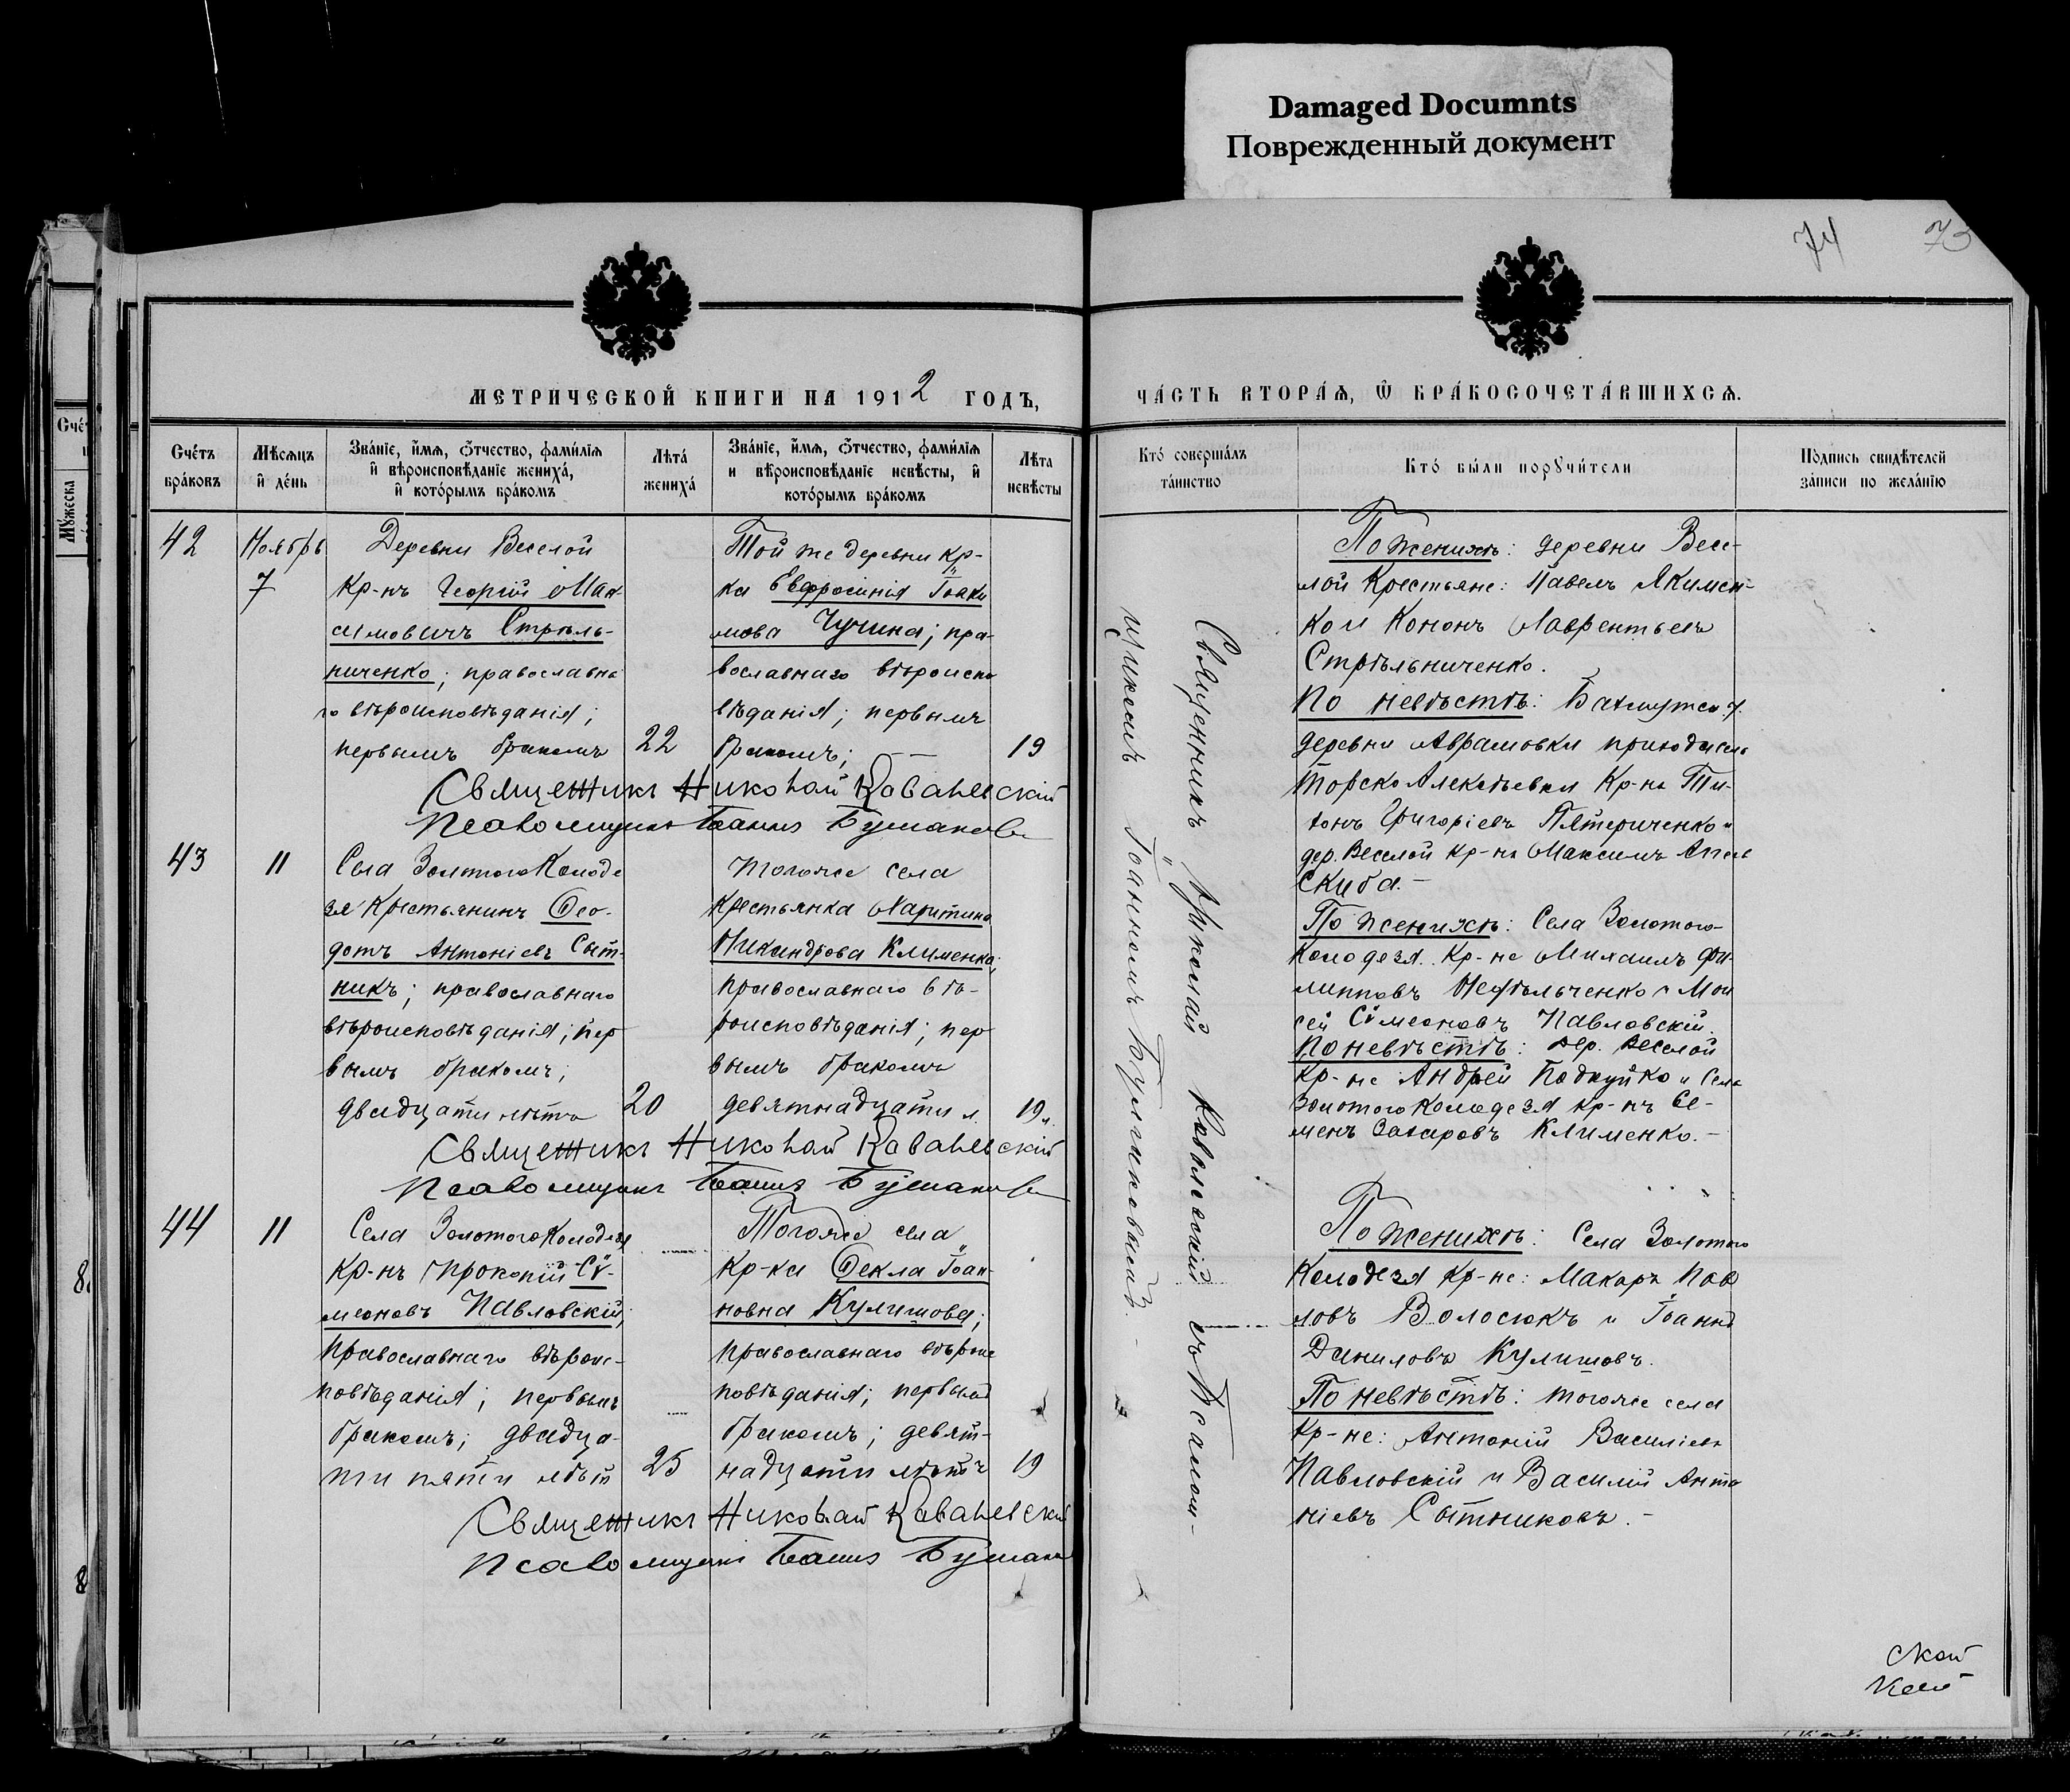 Damaged Documnts
Поврежденный документ
74 73
МЕТРИЧЕСКОЙ КНИГИ НА 1912 ГОДЪ,
Сче́тъ бра́ковъ
Мѣсяцъ и҆ де́нь
Зва́нїе, и҆́мѧ, ѻ҆́тчество, фами́лїѧ
и҆ вѣроисповѣ́данїе жениха́,
и҆ кото́рымъ бра́комъ
Лѣта́ жениха́
Зва́нїе, и҆́мѧ, ѻ҆́тчество, фами́лїѧ
и вѣроисповѣ́данїе невѣ́сты, и҆
кото́рымъ бра́комъ
Лѣта невѣсты
42
Ноябрь
7
Деревни Веселой
кр-нъ Георгій Мак
симовичъ Стрѣль-
ниченко; православна
го вѣроисповѣданія;
первымъ бракомъ
22
Той же деревни кр-
ка Евфросинія Іоаки
мова Чучина; пра-
вославнаго вѣроиспо
вѣданія; первымъ
бракомъ; —
19
Священникъ Николай Ковалевскій
Псаломщикъ Іоаннъ
43
11
Села Золотого Колоде
зя Крестьянинъ Ѳео-
дотъ Антоніевъ Сыт-
никъ; православнаго
вѣроисповѣданія; пер
вымъ бракомъ;
двадцати лѣтъ
20
Тогоже села
Крестьянка Харитина
Никандрова Клименко;
православнаго вѣ-
роисповѣданія; пер
вымъ бракомъ
девятнадцати л.
19 л.
Священникъ Николай Ковалевскій
Псаломщикъ Іоаннъ
44
11
Села Золотого Колодезя
кр-нъ Прокопій Сѵ-
меоновъ Павловскій;
православнаго вѣроис-
повѣданія; первымъ
бракомъ; двадца-
ти пяти лѣт
25
Тогоже села
кр-ка Ѳекла Іоан-
новна Кулишова;
православнаго вѣроис
повѣданія; первымъ
бракомъ; девят-
надцати лѣтъ
19
Священникъ Николай Ковалевскій
Псаломщикъ Іоаннъ
ЧА́СТЬ ВТОРА́Ѧ, Ѽ БРА́КОСОЧЕТА́ВШИХСѦ.
Кто́ соверша́лъ та́инство
Кто́ бы́ли порꙋчи́тели
По́дпись свидѣ́телей за́писи по жела́нїю
Священникъ Николай Ковалевскій съ Псалом-
щикомъ Іоанномъ
По женихѣ: деревни Весе-
лой Крестьяне: Павелъ Якимен-
ко и Кононъ Лаврентьевъ
Стрѣльниченко.
По невѣстѣ: Бахмутск. у.
деревни Аврамовки прихода села
Торско Алексѣевки Кр-нъ Ти-
хонъ Григоріевъ Пятериченко и
дер. Веселой кр-нъ Максимъ
Скиба.—
По женихѣ: Села Золотого-
Колодезя. Кр-не Михаилъ Фи-
липповъ и Мои
сей Сѵмеоновъ Павловскій.
По невѣстѣ: Дер. Веселой
кр-не Андрей и Села
Золотого Колодезя кр-нъ Се-
менъ Захаровъ Клименко.—
По женихѣ: Села Золотого
Колодезя кр-не: Макаръ Пав
ловъ Волосюкъ и Іоаннъ
Даниловъ Кулишовъ.
По невѣстѣ: тогоже села
кр-не: Антоній Василіевъ
Павловскій и Василій Анто
ніевъ Сытниковъ.—
ской